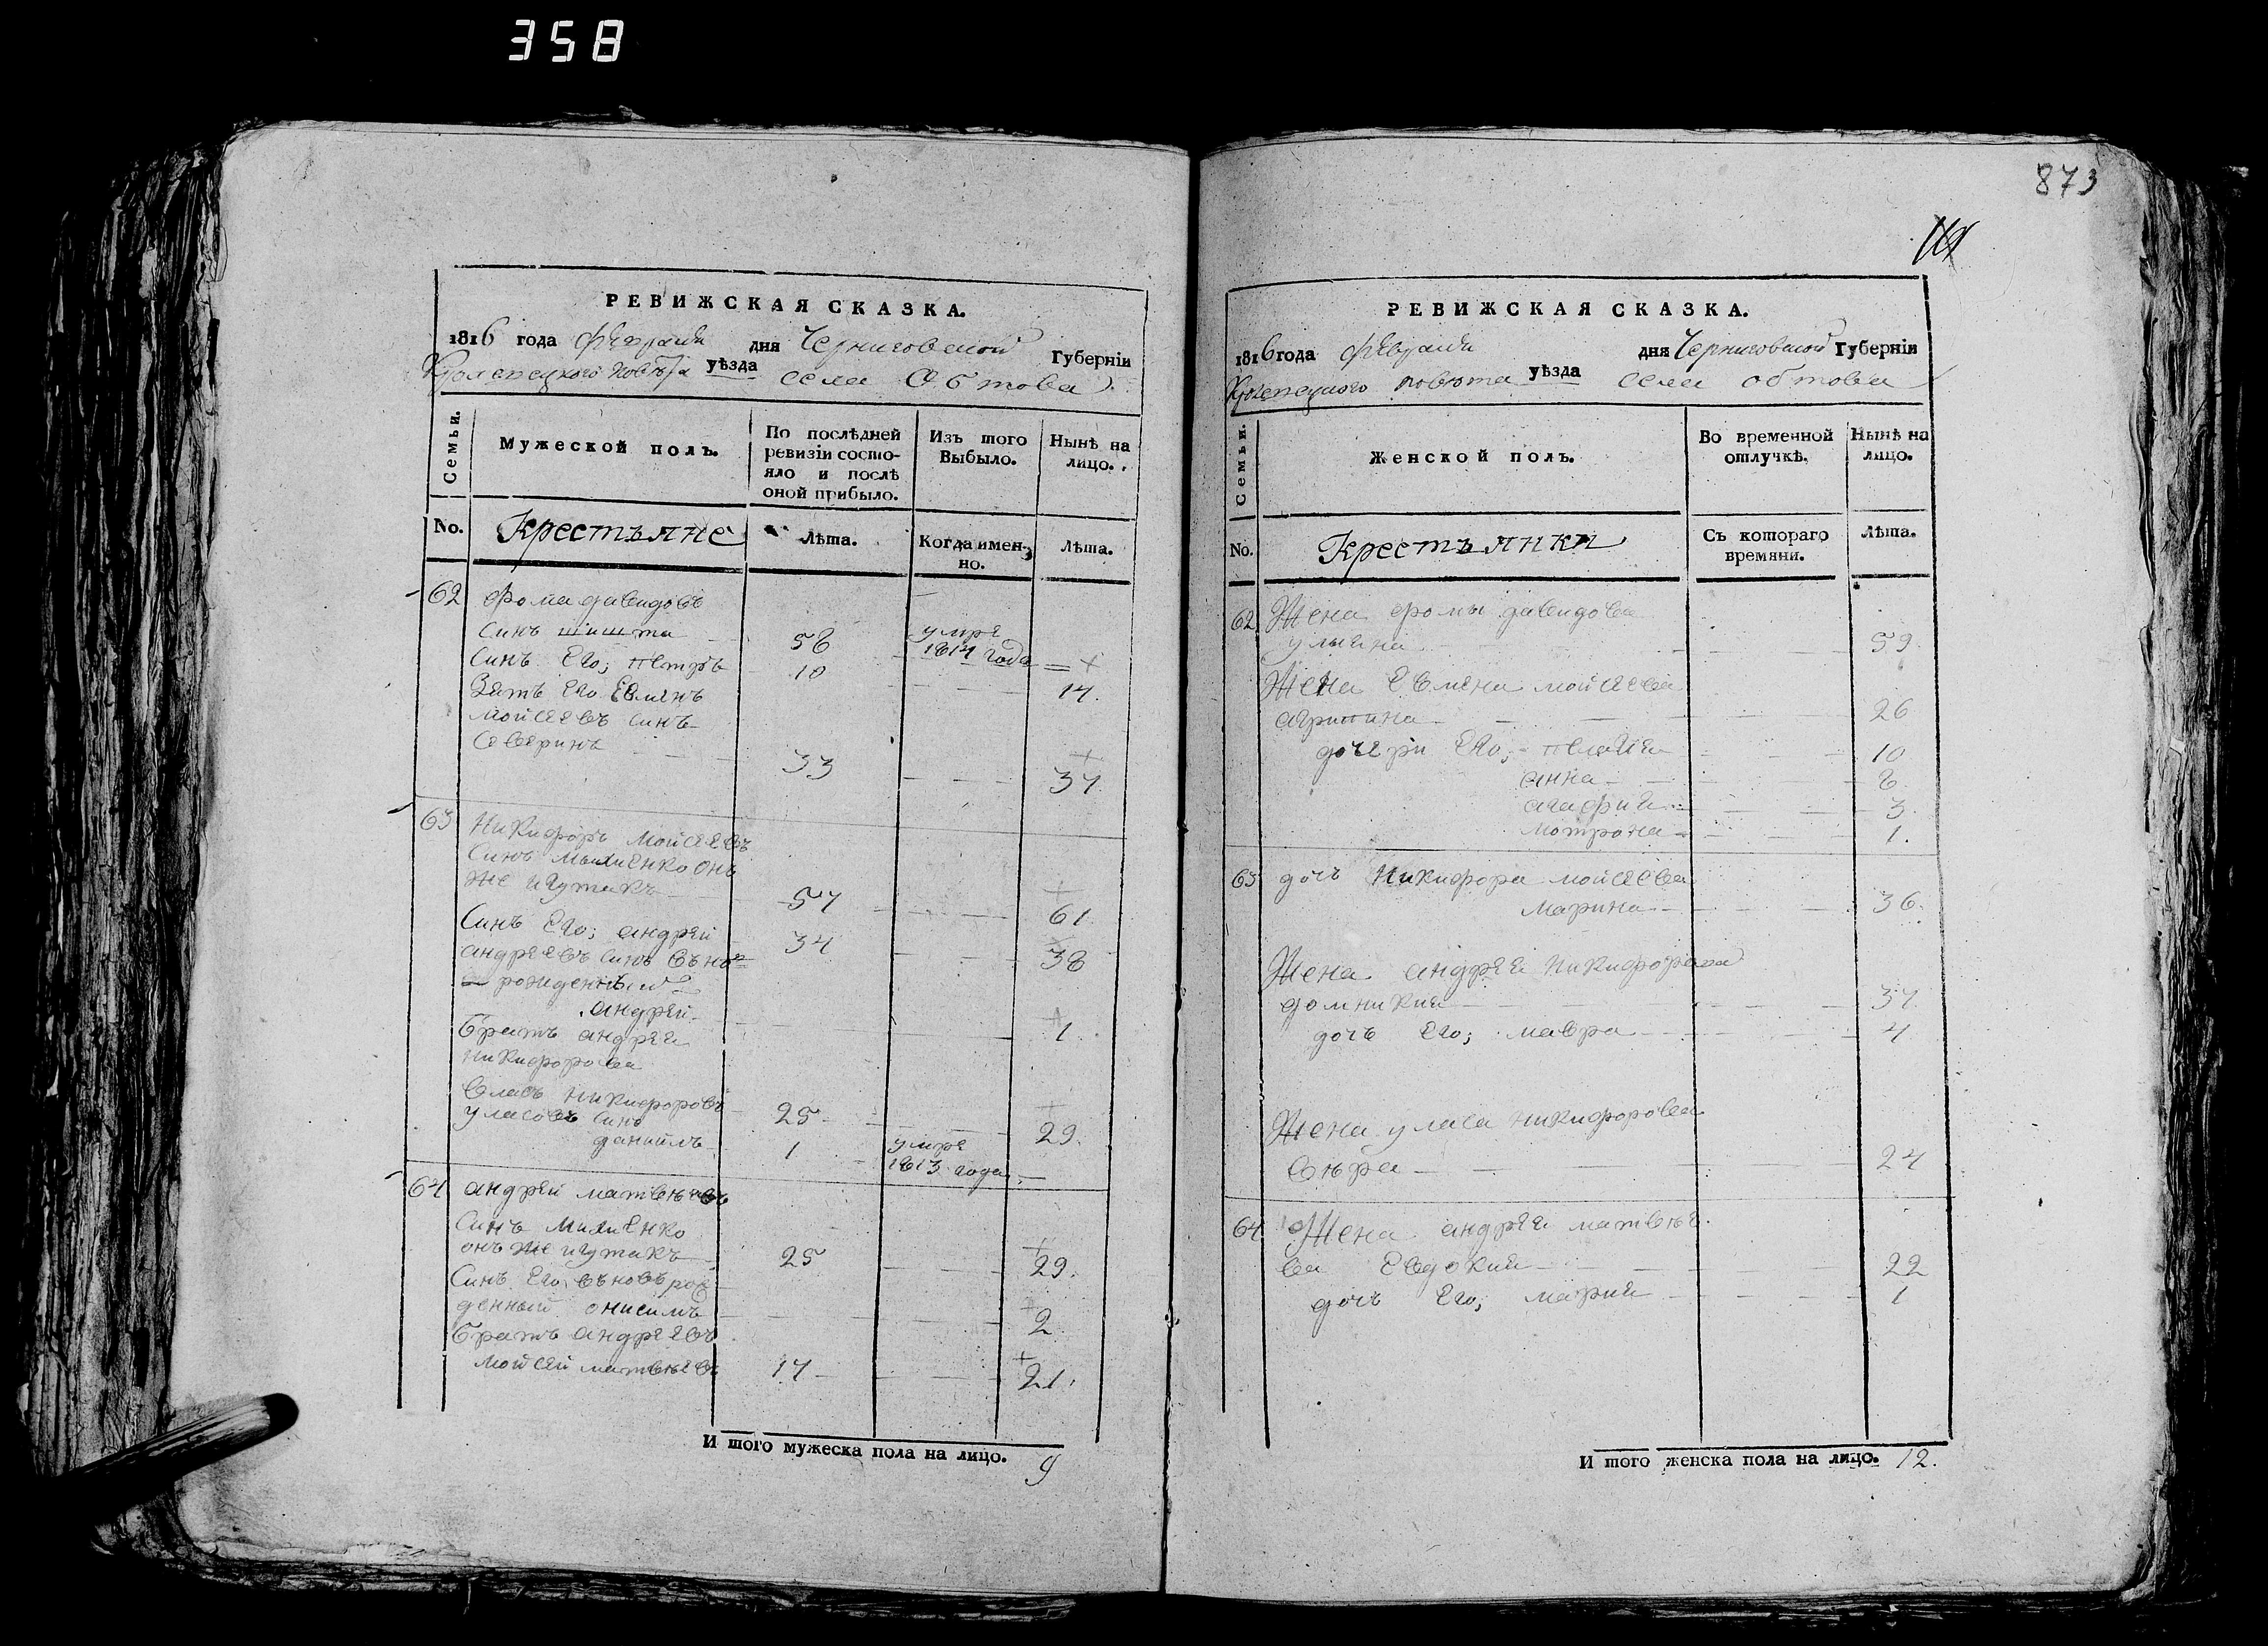 358
РЕВИЖСКАЯ СКАЗКА.
1816 года февраля дня Черниговской Губерніи
Кролевецкого повѣта уѣзда села Обтова
Семьи.
Мужеской полъ.
По послѣдней ревизіи состояло и послѣ оной прибыло.
Изъ того Выбыло.
Нынѣ на лицо.
No.
Крестъяне
Лѣта.
Когда именно.
Лѣта.
62 Фома давидовъ
синъ 58 умре 1814 года
синъ Его; петръ 10 14.
Зять Его Евменъ
мойсеевъ синъ
Северинъ 33 37
63 Никифоръ мойсеевъ
синъ онъ
же игутакъ 57 61
Синъ Его; андрей 34 38
андреевъ синъ вънов
рожденный
андрей 1
братъ андрея
никифорова
власъ никифоровъ 25 29.
уласовъ синъ
данилъ 1 умре 1813 года
64 андрей матвѣевъ
Синъ
онъ же игутакъ 25 29.
Синъ Его вновърож
денный онисимъ 2
братъ андреевъ
мойсей матвѣевъ 17 21.
И того мужеска пола на лицо. 9
873
РЕВИЖСКАЯ СКАЗКА.
1816 года февраля дня Черниговской Губерніи
Кролевецкого повѣта уѣзда села обтова
Семьи.
Женской полъ.
Во временной отлучкѣ.
Нынѣ на лицо.
No.
Крестъянки
Съ котораго времяни.
Лѣта.
62 Жена фомы давидова
улияна 59.
Жена Евмена мойсеева
агрипина 26
дочери Его; пелагея 10
анна 8.
агафия 3.
мотрона 1.
63 дочъ Никифора мойсеева
марина 36.
Жена андрея никифорова
домникия 37.
дочъ Его; мавра 4
Жена уласа никифорова
вѣра 24
64 Жена андрея матвѣе
ва Евдокия 22
дочъ Его; мария 1
И того женска пола на лицо. 12.